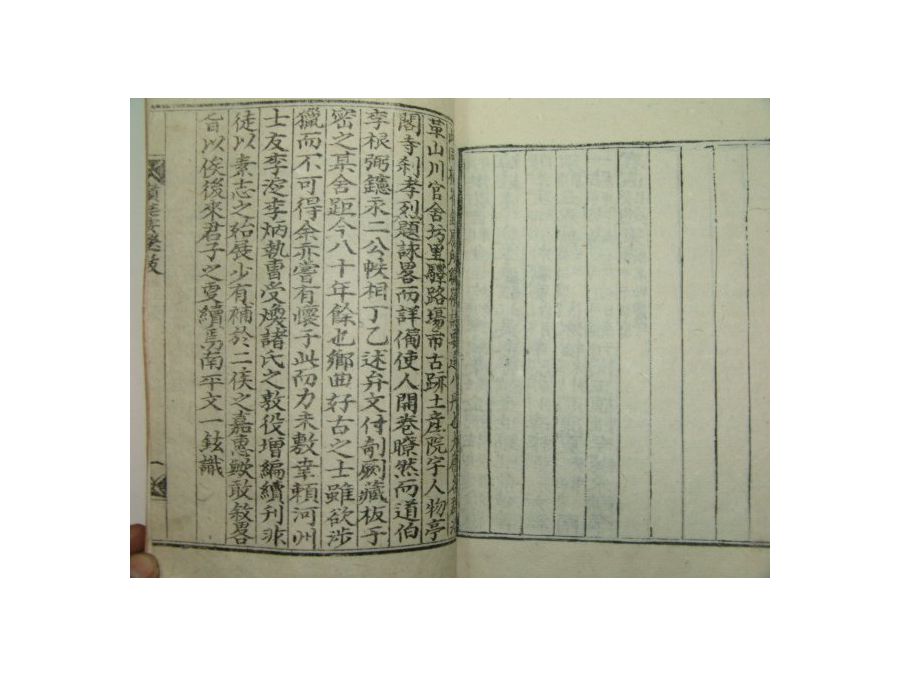 革山川官舍坊里驛路塲市古跡土産院宇人物亭
閣寺刹孝烈題詠畧而詳備使人開卷瞭然而道伯
李根弼鑴永二公帙相丁乙述弁文付剞劂藏板于
密之某舍距今八十年餘也鄕曲好古之士雖欲涉
獵而不可得余亦嘗有懷于此而力未敷幸賴河州
士友李涏李炳執曺受煥諸氏之敦役增編續刊非
徒以素志之紿展少有補於二侯之嘉惠玆敢敘畧
旨以俟後來君子之更續焉南平文一鉉識